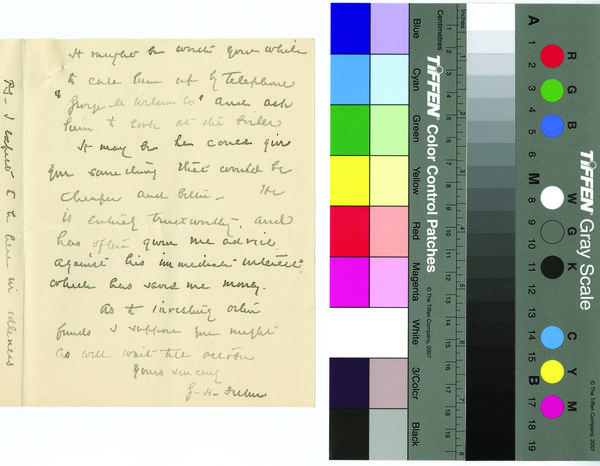 It might be worth your while
to call him up by telephone
& Co" and ask
him to look at the boiler
It may be he could give
you something that would be
cheaper and better – He
is entirely trustworthy, and
has often given me advice
against his immediate interest,
which has saved me money.
As to investing other
funds I suppose you might
as well wait till october
Yours sincerely
G-H-
PS – I expect to be here in idleness
Blue
Cyan
Green
Yellow
Red
Magenta
White
3/Color
Black
TIFFEN Color Control Patches
© The Tiffen Company, 2007
Centimetres
Inches
1
2
3
4
5
6
7
8
9
10
11
12
13
14
15
16
17
18
19
1
2
3
4
5
6
7
8
A
1
2
3
4
5
6
M
8
9
10
11
12
13
14
15
B
17
18
19
R
G
B
W
G
K
C
Y
M
TIFFEN Gray Scale
© The Tiffen Company, 2007